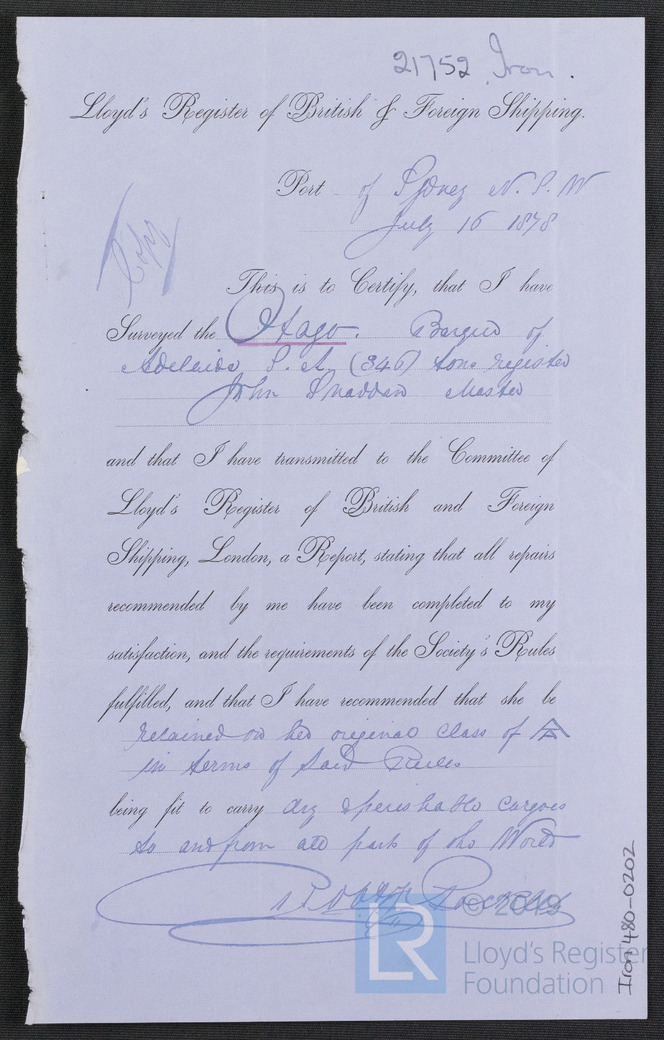 21752 Iron.
Lloyd's Register of British & Foreign Shipping.
Port of Sydney N. S. W
July 16 1878
Copy
This is to Certify, that I have
Surveyed the Otago. Barque of
Adelaide S. A (346) tons register
John Snadden Master
and that I have transmitted to the Committee of
Lloyd's Register of British and Foreign
Shipping, London, a Report, stating that all repairs
recommended by me have been completed to my
satisfaction, and the requirements of the Society's Rules
fulfilled, and that I have recommended that she be
retained on her original Class of
in terms of said Rules
being fit to carry dry & perishable Cargoes
to and from all parts of the World
© 2019
LR
Lloyd's Register
Foundation
Iron 480-0202